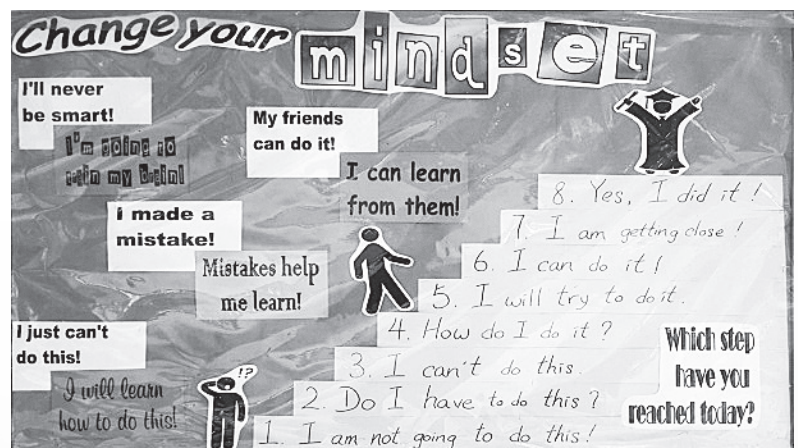 Change your mindset
I'll never
be smart!
I'm going to
train my brain!
My friends
can do it!
I can learn
from them!
I made a
mistake!
Mistakes help
me learn!
I just can't
do this!
I will learn
how to do this!
!?
8. Yes, I did it!
7. I am getting close!
6. I can do it!
5. I will try to do it.
4. How do I do it?
3. I can't do this.
2. Do I have to do this?
1. I am not going to do this!
Which step
have you
reached today?